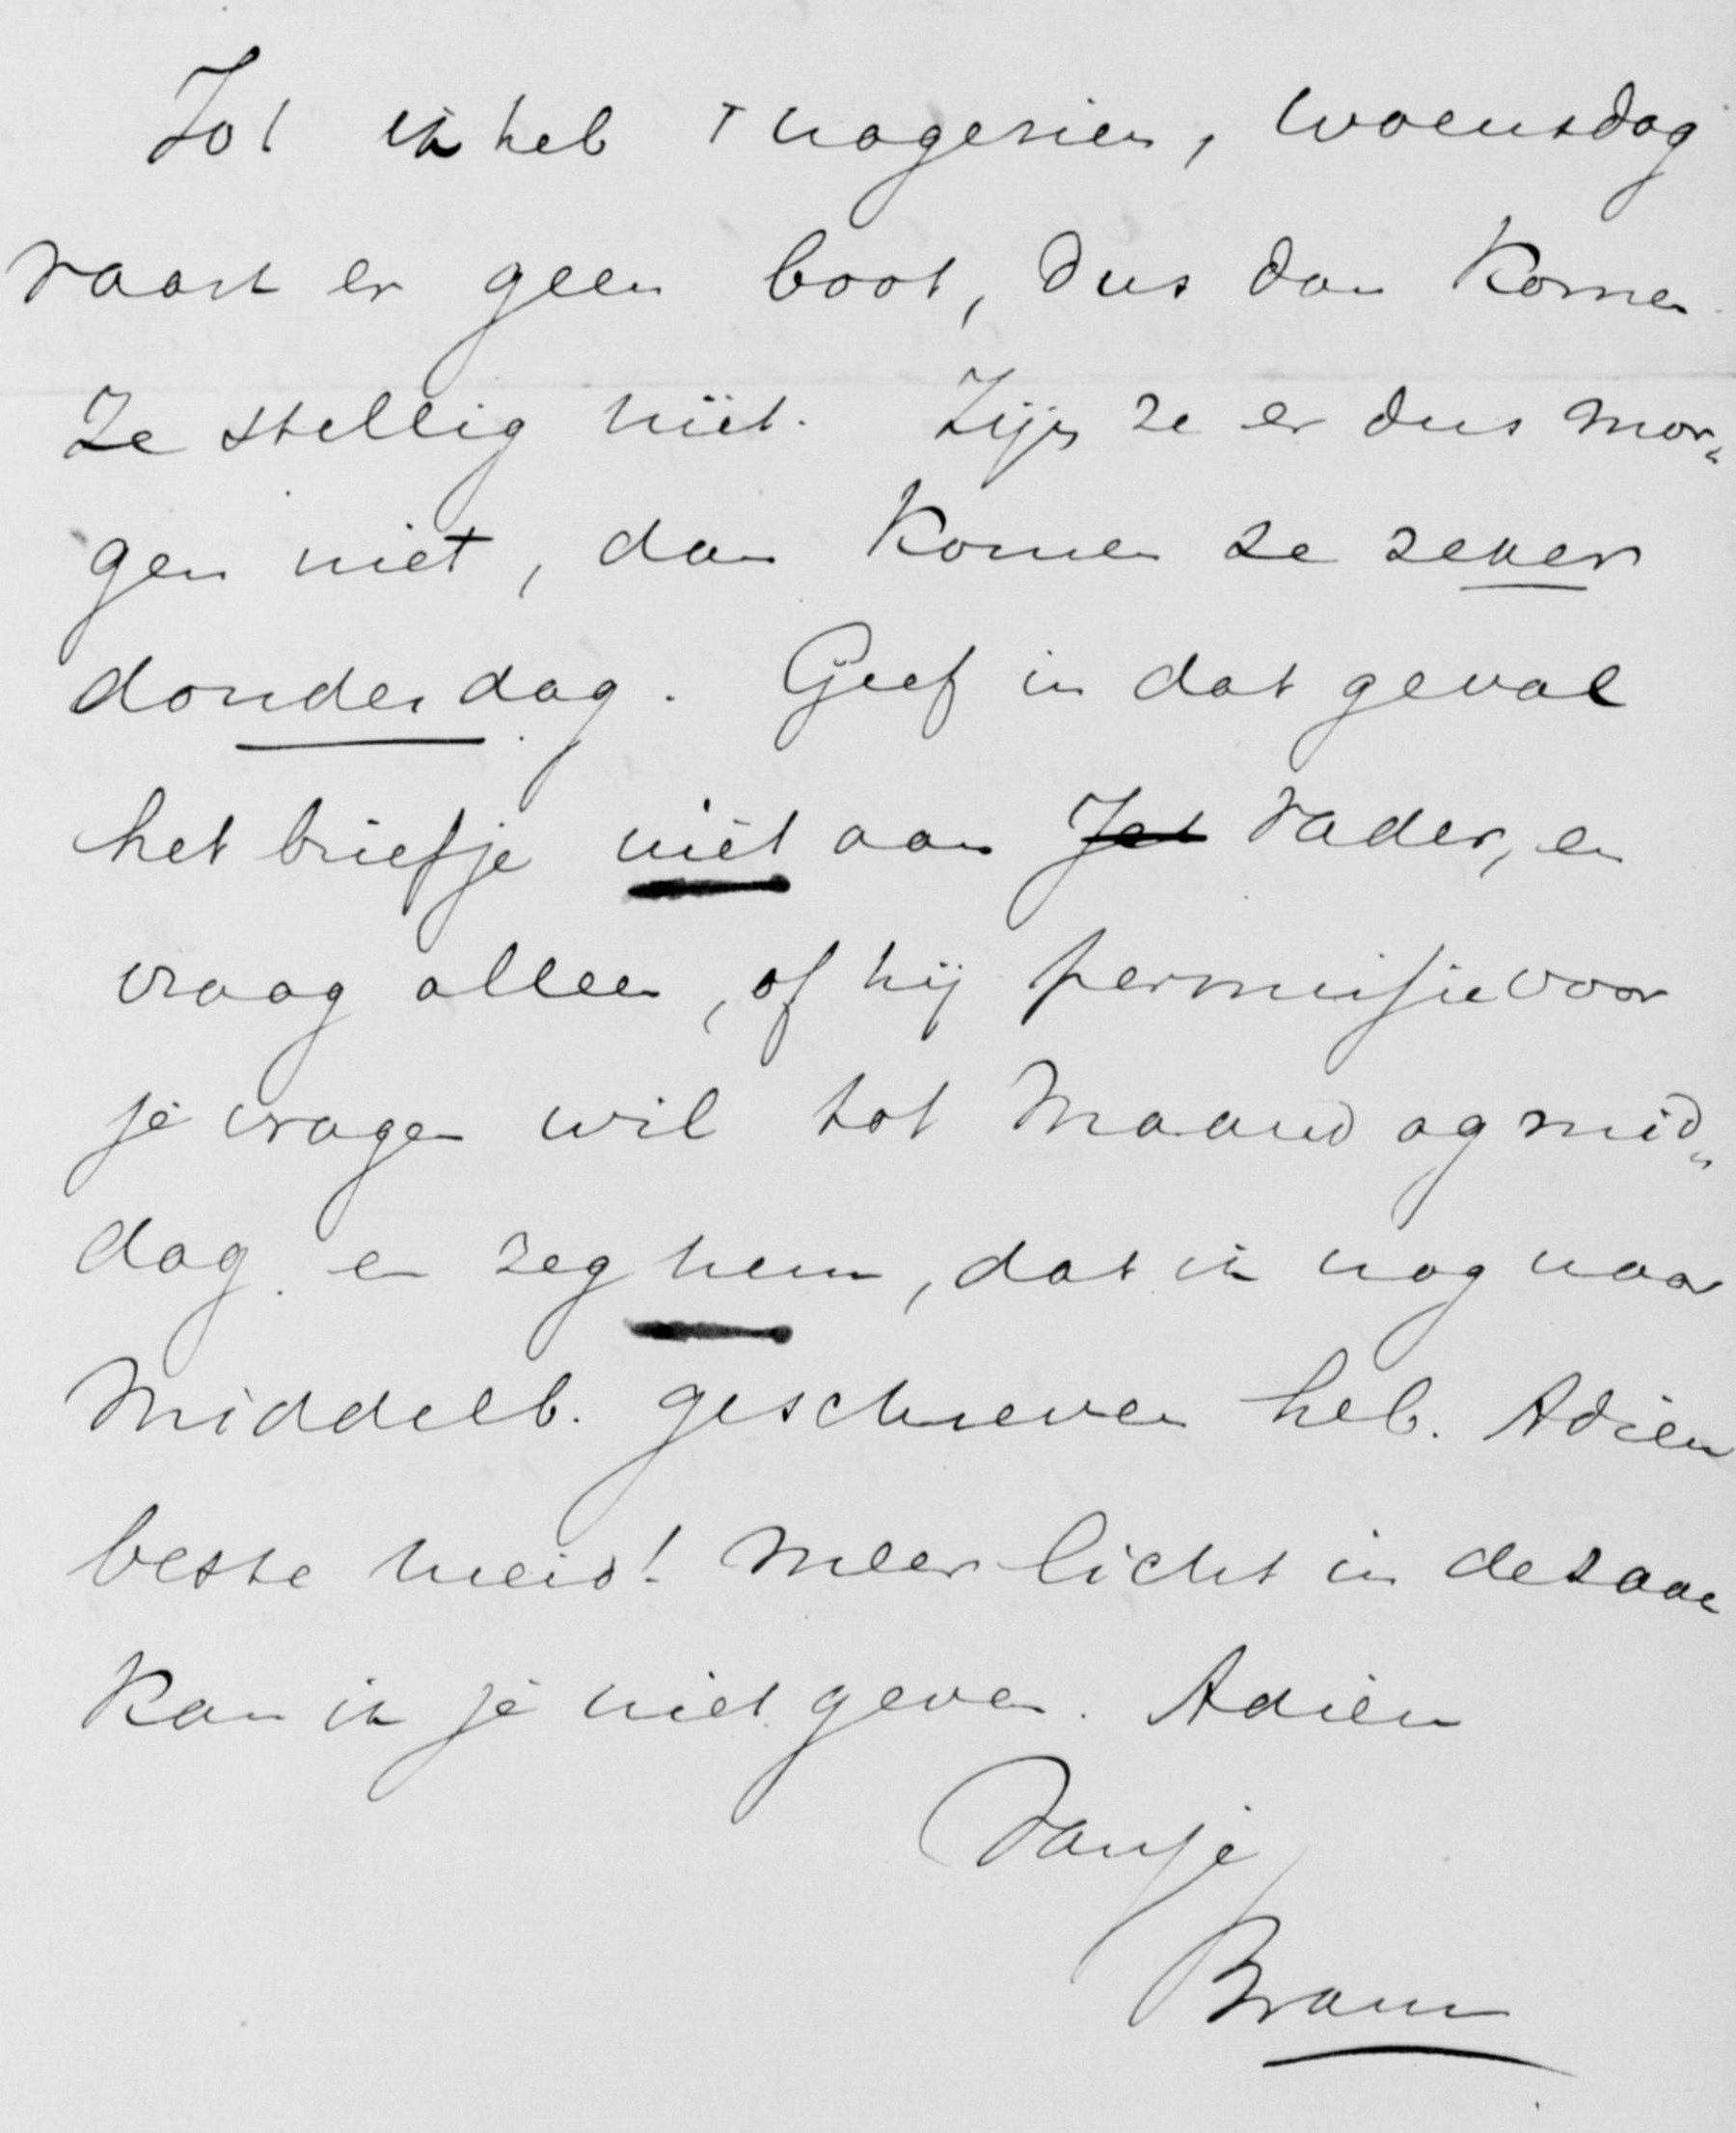 Zot ik heb 't nagezien, woensdag
vaart er geen boot, dus dan komen
ze stellig niet. Zijn ze er dus mor„
gen niet, dan komen ze zeker
donderdag. Geef in dat geval
het briefje niet aan Jet Vader, en
vraag alleen, of hij permissie voor
je vragen wil tot Maandagmid„
dag en zeg hem, dat ik nog naar
Middelb. geschreven heb. Adieu
beste meid! Meer licht in de zaak
kan ik je niet geven. Adieu
Bram